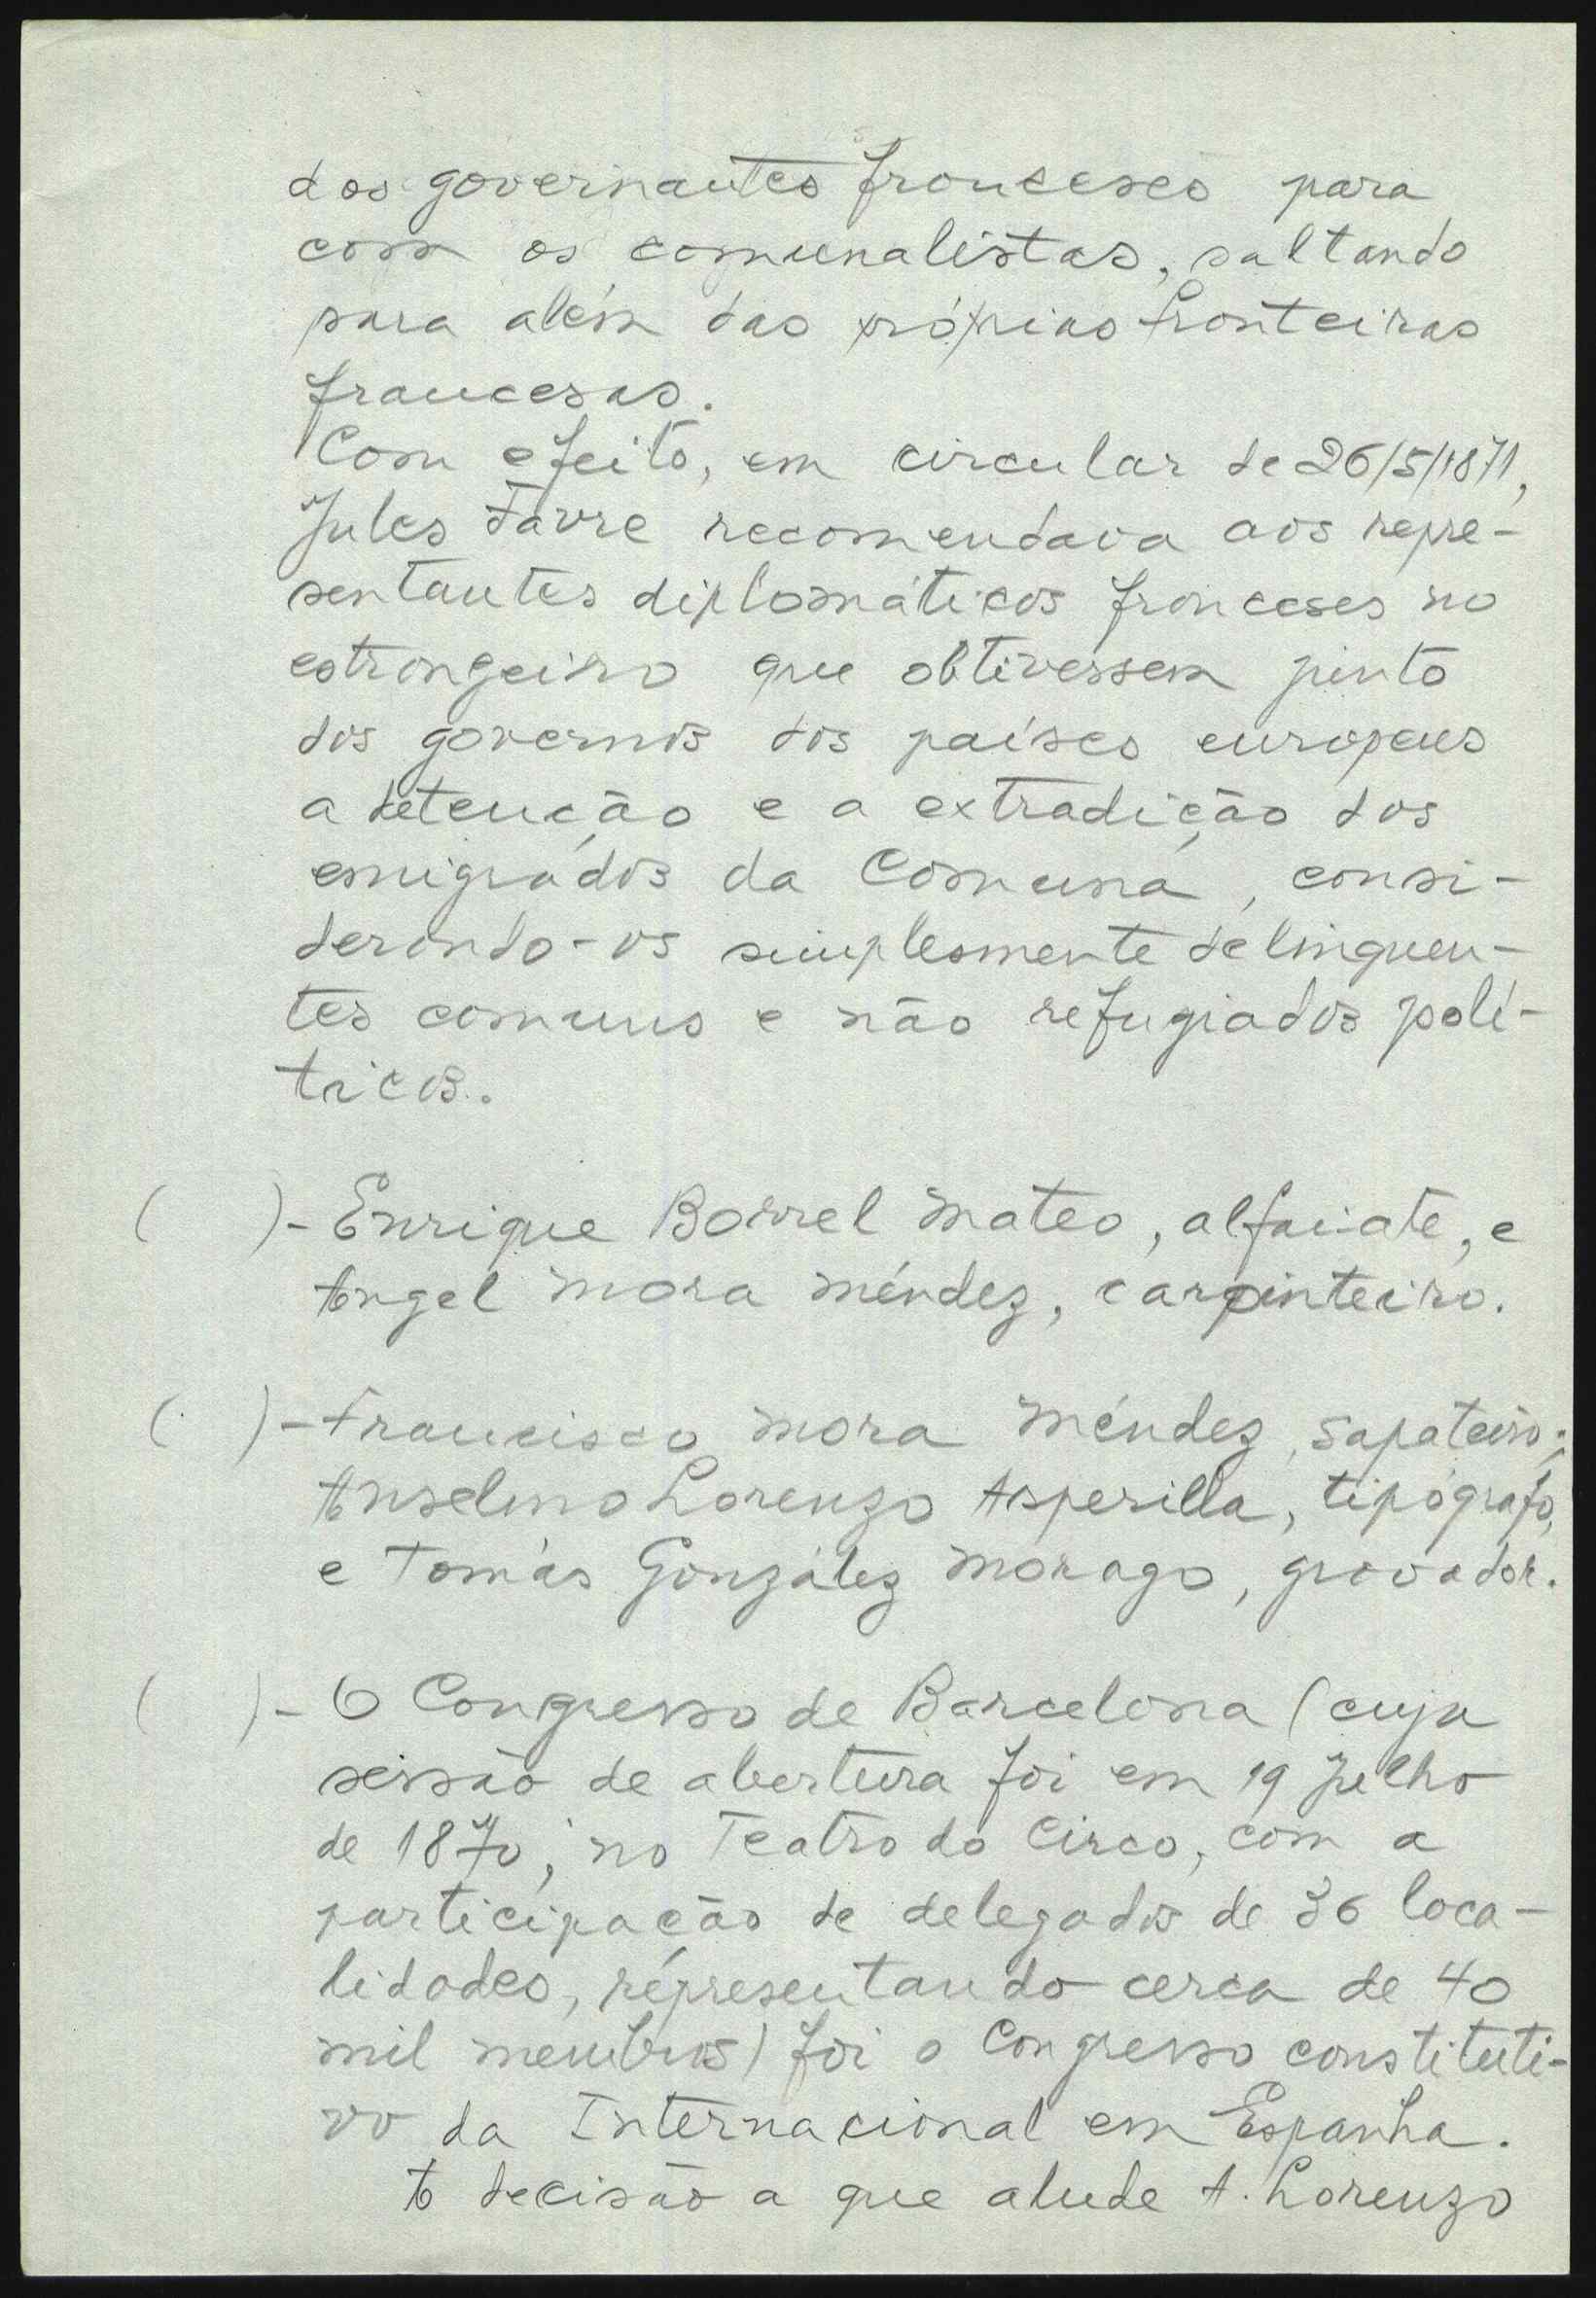 dos governantes franceses para
com os comunalistas, saltando
para além das próprias fronteiras
francesas.
Com efeito, em circular de 26/5/1871,
Jules Favre recomendava aos repre-
sentantes diplomáticos franceses no
estrangeiro que obtivessem junto
dos governos dos países europeus
a detenção e a extradição dos
emigrados da Comuna, consi-
derando-os simplesmente delinquen-
tes comuns e não refugiados polí-
ticos.
( )- Enrique Borrel Mateo, alfaiate, e
Angel Mora Méndez, carpinteiro.
( )- Francisco Mora Méndez, sapateiro;
Anselmo Lorenzo Asperilla, tipógrafo,
e Tomás González Morago, gravador.
( )- O Congresso de Barcelona (cuja
sessão de abertura foi em 19 Julho
de 1870, no Teatro do Circo, com a
participação de delegados de 36 loca-
lidades, representando cerca de 40
mil membros) foi o Congresso constituti-
vo da Internacional em Espanha.
A decisão a que alude A. Lorenzo